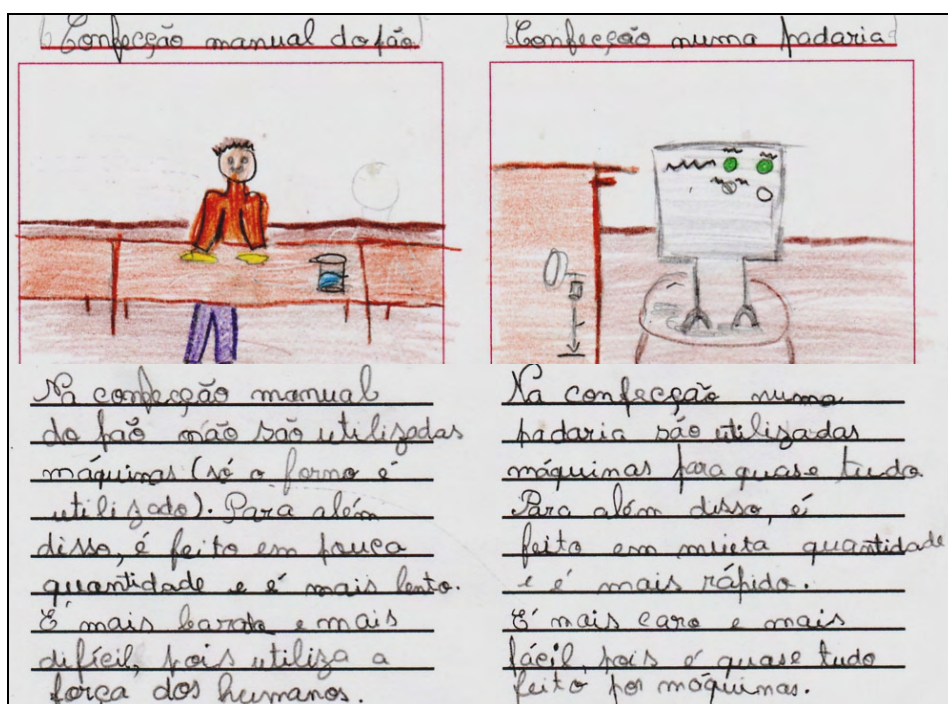 Confecção manual do pão
Na confecção manual
do pão não são utilizadas
máquinas (só o forno é
utilizado). Para além
disso, é feito em pouca
quantidade e é mais lento.
É mais barato e mais
difícil, pois utiliza a
força dos humanos.
Confecção numa padaria
Na confecção numa
padaria são utilizadas
máquinas para quase tudo
Para além disso, é
feito em muita quantidade
e é mais rápido.
É mais caro e mais
fácil, pois é quase tudo
feito por máquinas.